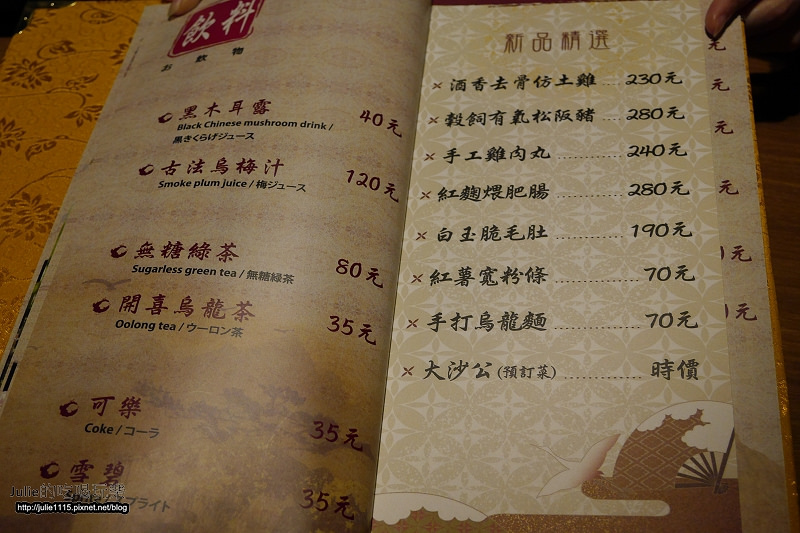 飲料
お飲物
黑木耳露 40元
Black Chinese mushroom drink /
黒きくらげジュース
古法烏梅汁 120元
Smoke plum juice / 梅ジュース
無糖綠茶 80元
Sugarless green tea / 無糖緑茶
開喜烏龍茶 35元
Oolong tea / ウーロン茶
可樂 35元
Coke / コーラ
雪碧 35元
プライト
新品精選
酒香去骨仿土雞 ... 230元
榖飼有氧松阪豬 ...... 280元
手工雞肉丸 ............ 240元
紅麴煨肥腸 ............ 280元
白玉脆毛肚 ............ 190元
紅薯寬粉條 ............ 70元
手打烏龍麵 ............ 70元
大沙公 (預訂菜) ............ 時價
元
元
元
元
元
元
Julie的吃喝玩樂
http://julie1115.pixnet.net/blog